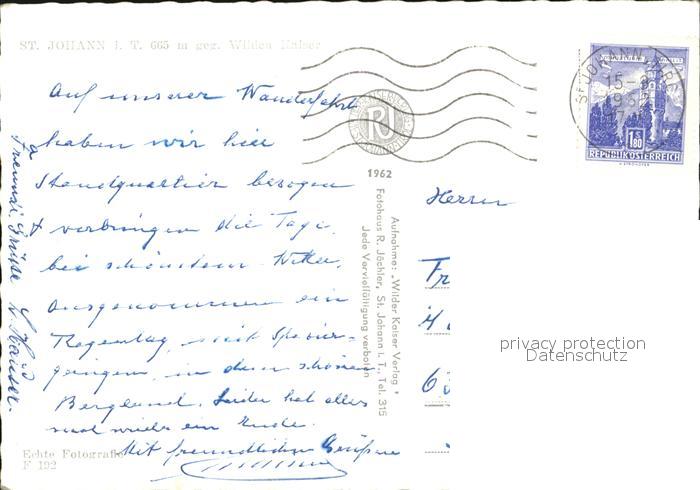 ST. JOHANN i. T. 665 m geg. Wilden Kaiser
Auf unserer Wanderfahrt
haben wir hier
Standquartier bezogen
& verbringen die Tage
bei schönstem Wetter,
ausgenommen ein
Regentag, mit Spazier-
gängen in dem schönen
Bergland. Leider hat alles
mal wieder ein Ende.
Mit freundlichen Grüßen
Freundl. Grüße
Echte Fotografie
F 122
1962
Aufnahme: „Wilder Kaiser Verlag"
Fotohaus R. Jöchler, St. Johann i. T., Tel. 315
Jede Vervielfältigung verboten
ST. JOHANN
15-
1 S
1.80
REPUBLIK ÖSTERREICH
Herrn
Fr
H.
63
privacy protection
Datenschutz